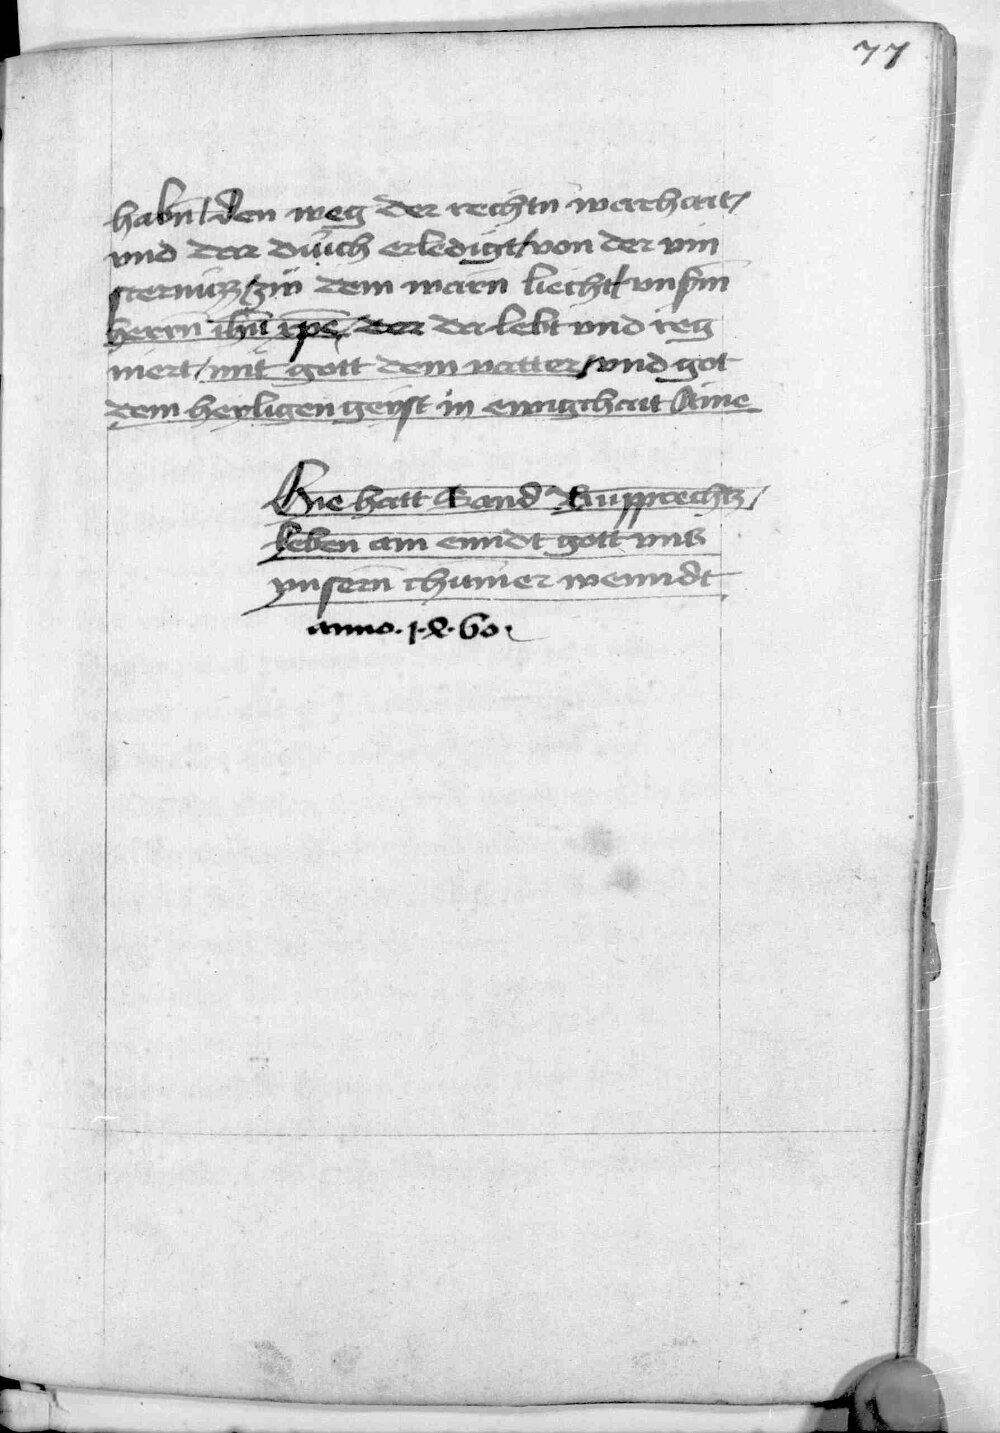 77
habn̄ / den weg der rechtn̄ warhait /
vnd dar durch erledigt / von der vin
sternüzz / zü dem warn liecht / vnsm̄
herrn ihū xpē / der da lebt vnd reg
niert / mit gott dem vatter / vnd got
dem heyligen geÿst in ewigchait Ame
Hie hatt Sand Rupprechtz /
leben ain enndt gott vnß
vnsern̄ chumer wenndt
anno · 1 · 4 · 60 ·